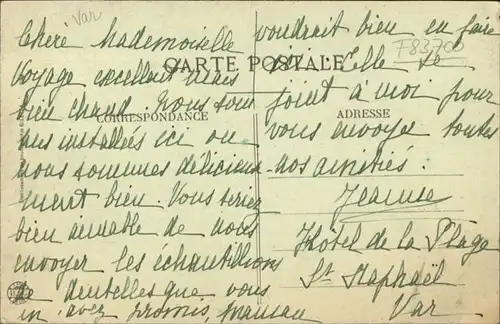 Var
Chère Mademoiselle
Voyage excellent mais
bien chaud. Nous som
mes installées ici ou
nous sommes délicieuse
ment bien. Vous seriez
bien aimable de nous
envoyer les échantillons
de dentelles que vous
m'avez promis, maman
voudrait bien en faire
F83700
CARTE POSTALE
Elle se
joint à moi pour
CORRESPONDANCE
ADRESSE
vous envoyer toutes
nos amitiés.
Jeanne
Hôtel de la Plage
St Raphaël
Var